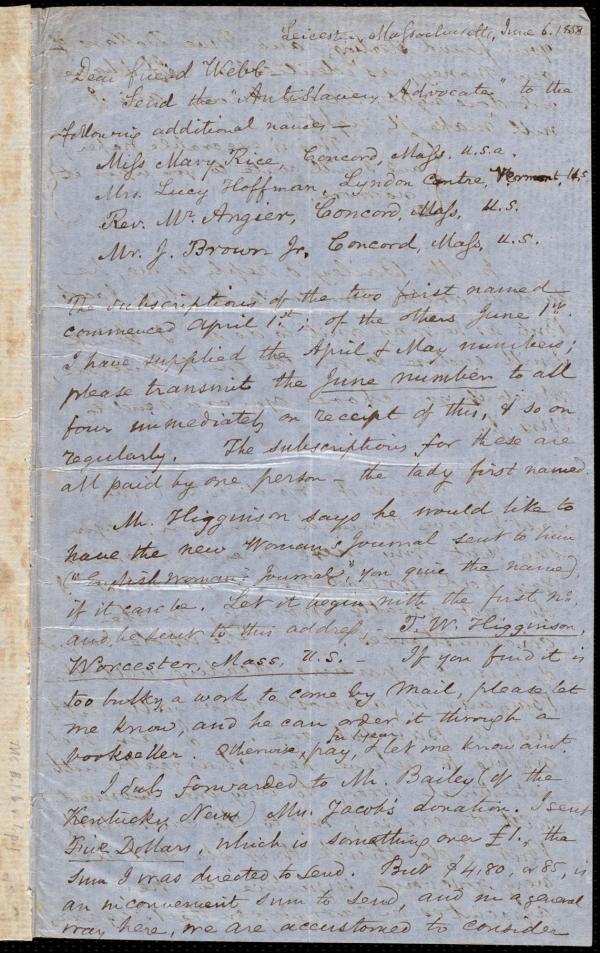 Leicester, Massachusetts, June 6. 1858
Dear friend Webb -
Send the "Anti-Slavery Advocate" to the
following additional names, -
Miss Mary Rice, Concord, Mass. U.S.a.
Mrs. Lucy Hoffman, Lyndon Centre, Vermont, U.S
Rev. Mr. Angier, Concord, Mass, U.S.
Mr. J. Brown Jr, Concord, Mass, U.S.
The subscriptions of the two first named
commenced April 1st; of the others June 1st.
I have supplied the April & May numbers;
please transmit the June number to all
four immediately on receipt of this, & so on
regularly. The subscriptions for these are
all paid by one person - the lady first named.
Mr. Higginson says he would like to
have the new Woman's Journal sent to him
("English Woman's Journal", you give the name),
if it can be. Let it begin with the first no.
and be sent to this address, - T. W. Higginson,
Worcester, Mass, U.S. - If you find it is
too bulky a work to come by mail, please let
me know, and he can order it through a
bookseller. Otherwise, pay, for 1 year, & let me know amt.
I duly forwarded to Mr. Bailey (of the
Kentucky News) Mrs. Jacob's donation. I sent
Five Dollars, which is something over £1., the
sum I was directed to send. But $4,80, or 85, is
an inconvenient sum to send, and in a general
way here, we are accustomed to consider